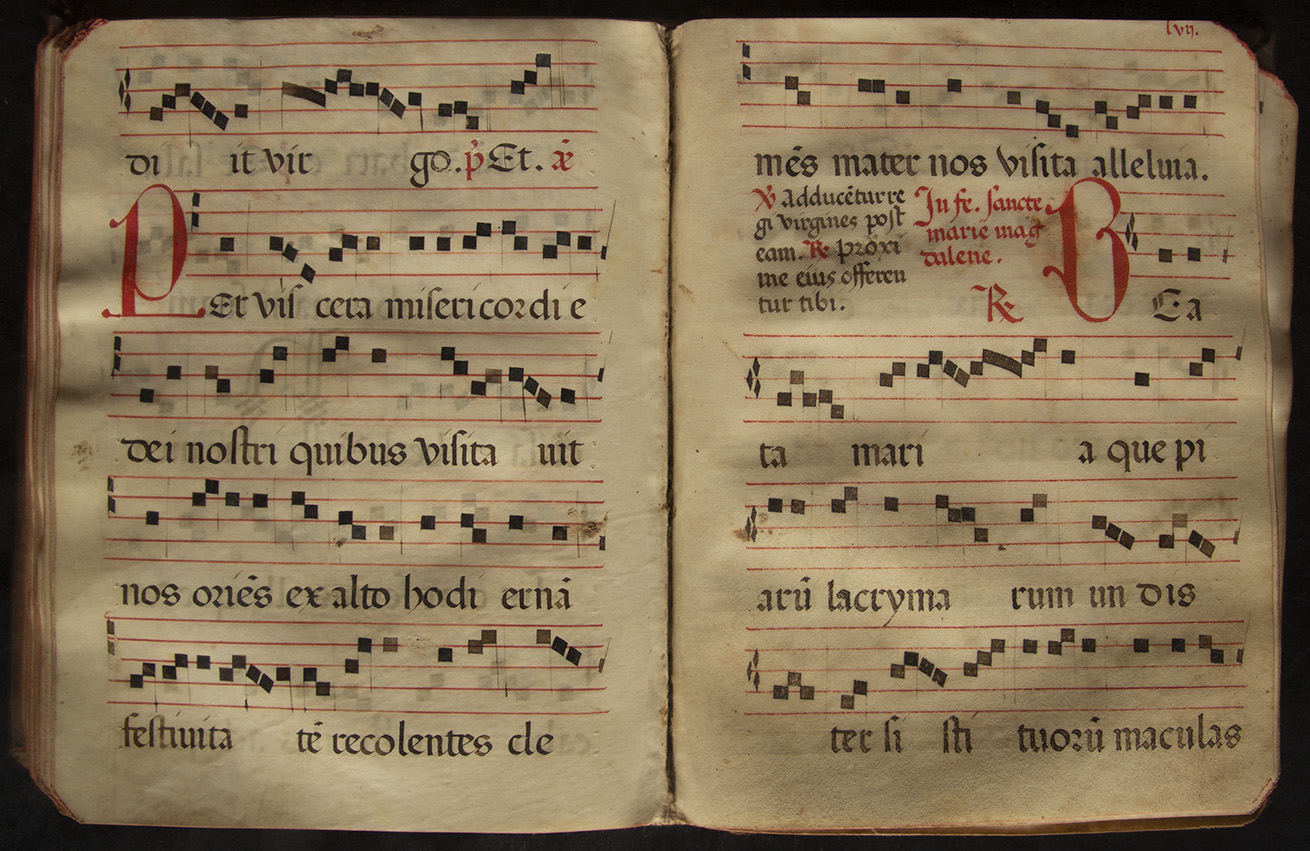 di it vir go. p̃ Et. æ̃
PEr viſ cera miſericordi e
dei noſtri quibus viſita uit
nos oriẽs ex alto hodi ernã
feſtiuita tẽ recolentes cle
lvij.
mẽs mater nos viſita alleluia.
℣ adducẽtur re
gi virgines poſt
eam. ℟ proxi
me eius offeren
tur tibi.
In fe. ſancte
marie mag
dalene.
℟ BEa
ta mari a que pi
arũ lacryma rum un dis
ter ſi ſti tuorũ maculas